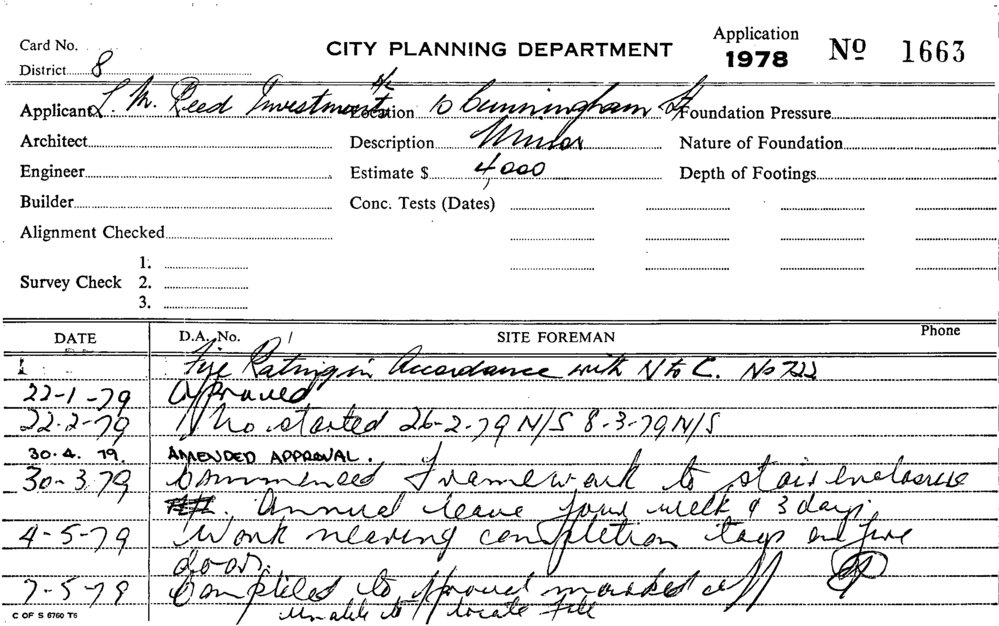 Card No.
CITY PLANNING DEPARTMENT
Application
1978
Nº 1663
District 8
Applicant L. M. Reed Investment
Location 10 Cunningham St
Foundation Pressure
Architect
Description Minor
Nature of Foundation
Engineer
Estimate $ 4,000
Depth of Footings
Builder
Conc. Tests (Dates)
Alignment Checked
Survey Check
1.
2.
3.
DATE D.A. No. SITE FOREMAN Phone
Fire Rating in Accordance with N to C. No 722
22-1-79 Approved
22.2-79 No started 26-2-79 N/S 8-3-79 N/S
30.4.79. AMENDED APPROVAL.
30-3.79 Commenced Framework to stair enclosure
Annual leave four week & 3 days
4-5-79 Work nearing completion tags on fire
door.
7-5-79 Completed to approval marked off
Unable to locate File
C OF S 6760 T6